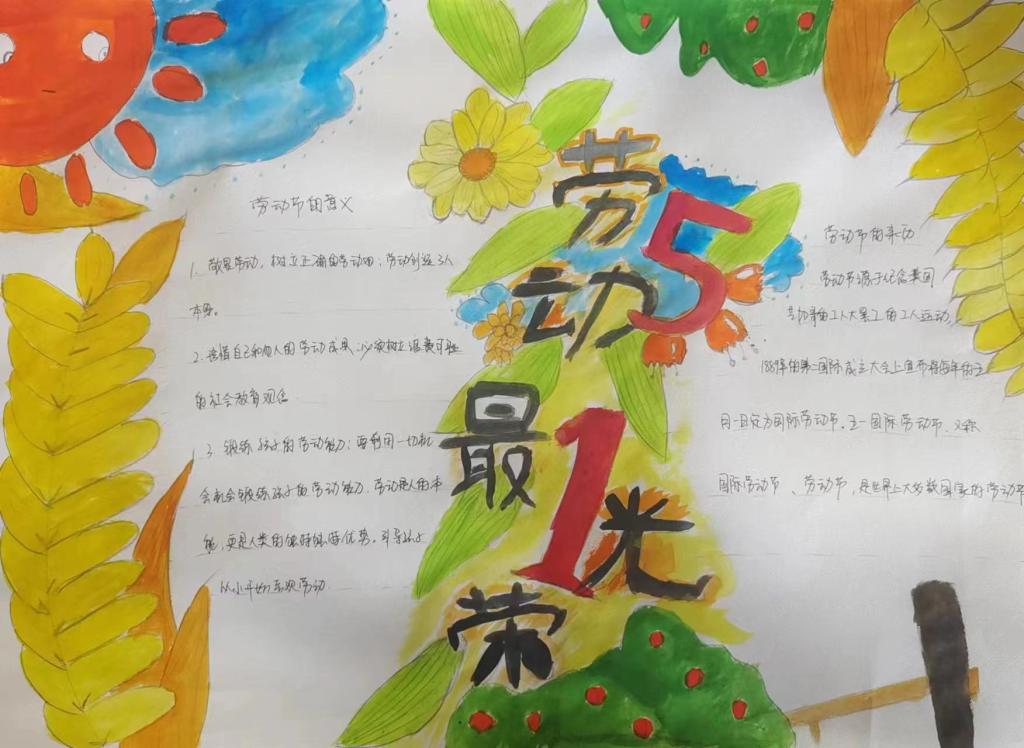 劳动最光荣
51
劳动节的意义
1. 敬畏劳动，树立正确的劳动观：劳动创造了人
本身。
2. 珍惜自己和他人的劳动成果：必须树立浪费可耻
的社会教育观念
3. 锻炼孩子的劳动能力：要利用一切机
会机会锻炼孩子的劳动能力，劳动是人的本
能，更是人类的独特优势。引导孩子
从小开始亲观劳动
劳动节的来历
劳动节源于纪念美国
芝加哥的工人大罢工的工人运动，
1889年的第二国际成立大会上宣布将每年的五
月一日定为国际劳动节。五一国际劳动节、又称
国际劳动节、劳动节，是世界上大多数国家的劳动节